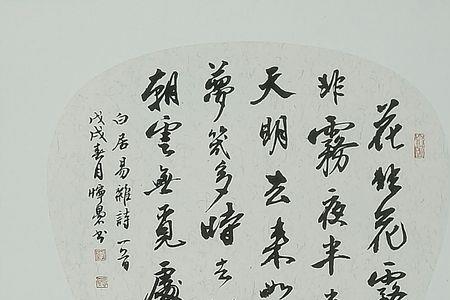 花非花霧
非霧夜半
天明去来如
夢幾多時去
朝雲無覓處
白居易雜詩一首
戊戌春月書